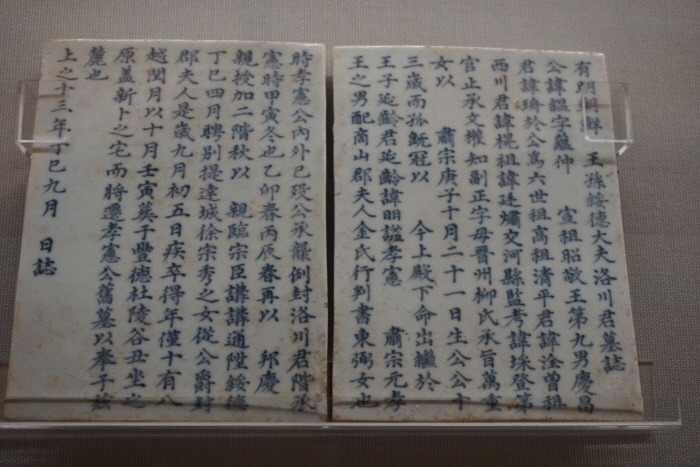 有明朝鮮 王孫綏德大夫洛川君墓誌
公諱縕字蘊仲 宣祖昭敬王第九男慶昌
君諱於公爲六世祖高祖清平君諱浍曾祖
西川君諱梡祖諱廷爀交河縣監考諱埰登第
官止承文權知副正字母晉州柳氏承旨萬重
女以 肅宗庚子十月二十一日生公公十
三歲而孤旣冠以 今上殿下命出繼於
王子延齡君延齡諱昍謚孝憲 肅宗元孝
王之男配商山郡夫人金氏行判書東弼女也
時孝憲公內外已歿公承襲例封洛川君階承
憲時甲寅冬也乙卯春丙辰春再以 邦慶
親授加二階秋以 親臨宗臣講講通陞綏德
丁巳四月聘別提達城徐宗秀之女從公爵封
郡夫人是歲九月初五日疾卒得年僅十有八
越閏月以十月壬寅葬于豊德杜陵谷丑坐之
原盖新卜之宅而將遷孝憲公舊墓以奉于玆
麓也
上之十三年丁巳九月 日誌